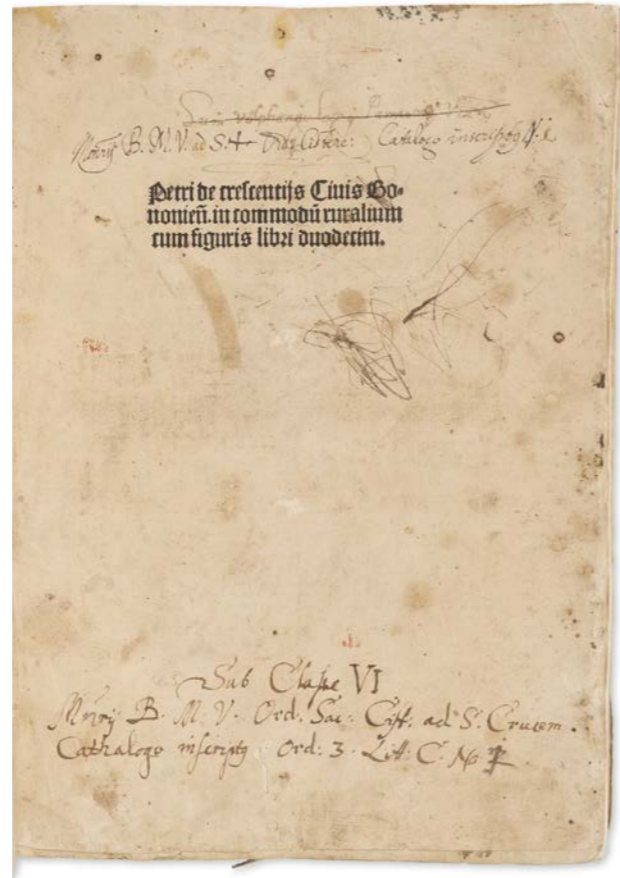 Monrij B. M. V. ad S. + Ord. Cisterc: Catalogo inscriptg N. 1
Petri de crescentijs Ciuis Bo-
nonień. in commodū ruralium
cum figuris libri duodecim.
Sub Classe VI
Monrij B. M. V. Ord. Sac. Cist. ad S. Crucem.
Cathalogo inscriptg Ord: 3. Lit. C. No